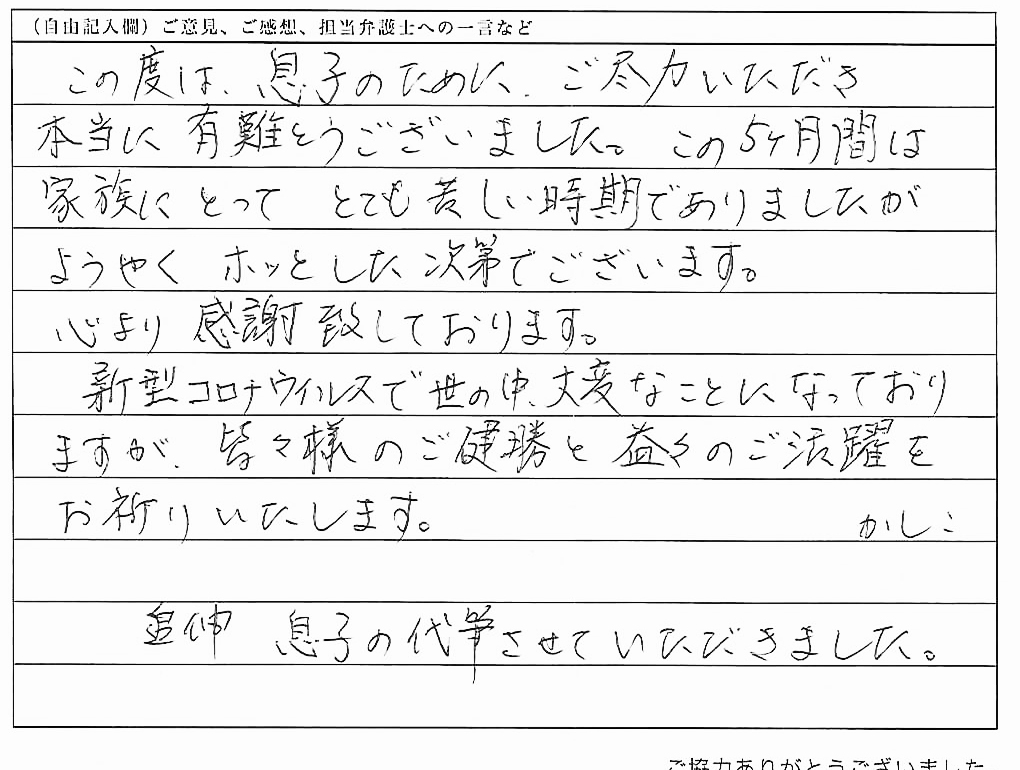 （自由記入欄）ご意見、ご感想、担当弁護士への一言など
この度は、息子のために、ご尽力いただき
本当に有難とうございました。この5ヶ月間は
家族にとって とても苦しい時期でありましたが
ようやく ホッとした次第でございます。
心より感謝致しております。
新型コロナウイルスで世の中、大変なことになっており
ますが、皆々様のご健勝と益々のご活躍を
お祈りいたします。
かしこ
追伸 息子の代筆させていただきました。
ご協力ありがとうございました